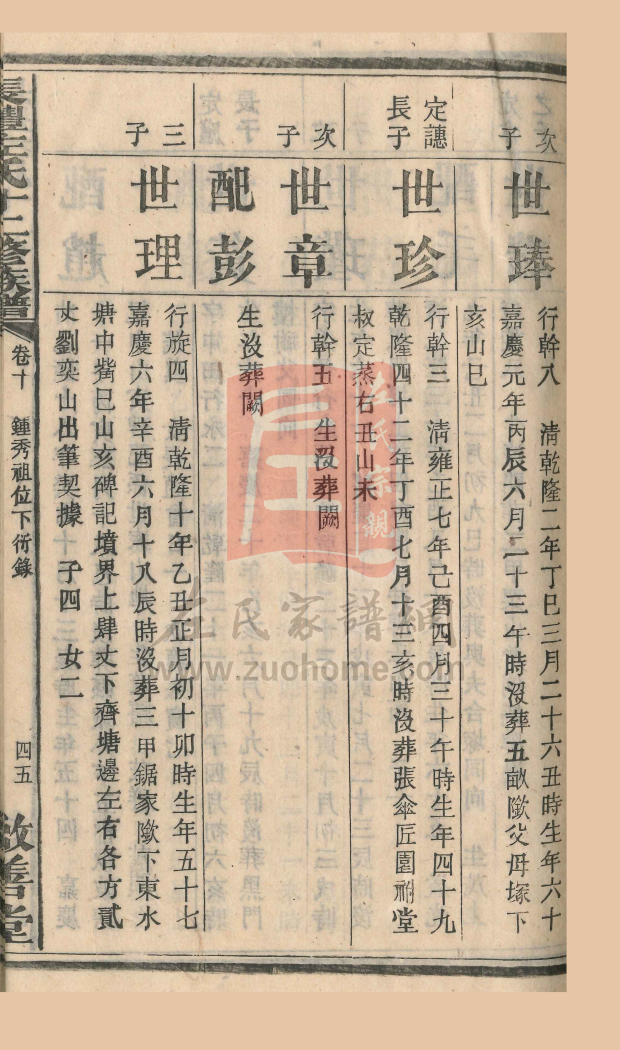 次子
世琫
行幹八 清乾隆二年丁巳三月二十六丑時生年六十
嘉慶元年丙辰六月二十三午時沒葬五畝歟父母塚下
亥山巳
定譓長子
世珍
行幹三 清雍正七年己酉四月三十午時生年四十九
乾隆四十二年丁酉七月十三亥時沒葬張傘匠園祔堂
叔定蒸右丑山未
次子
世章
行幹五 生沒葬闕
配彭
生沒葬闕
三子
世理
行旋四 清乾隆十年乙丑正月初十卯時生年五十七
嘉慶六年辛酉六月十八辰時沒葬三甲鋸家歟下東水
塘中觜巳山亥碑記墳界上肆丈下齊塘邊左右各方貳
丈劉奕山出筆契據 子四 女二
左氏十二修族譜 卷十 鍾秀祖位下衍錄 四五 敦善堂
左氏宗親
左氏家譜網
www.zuohome.com